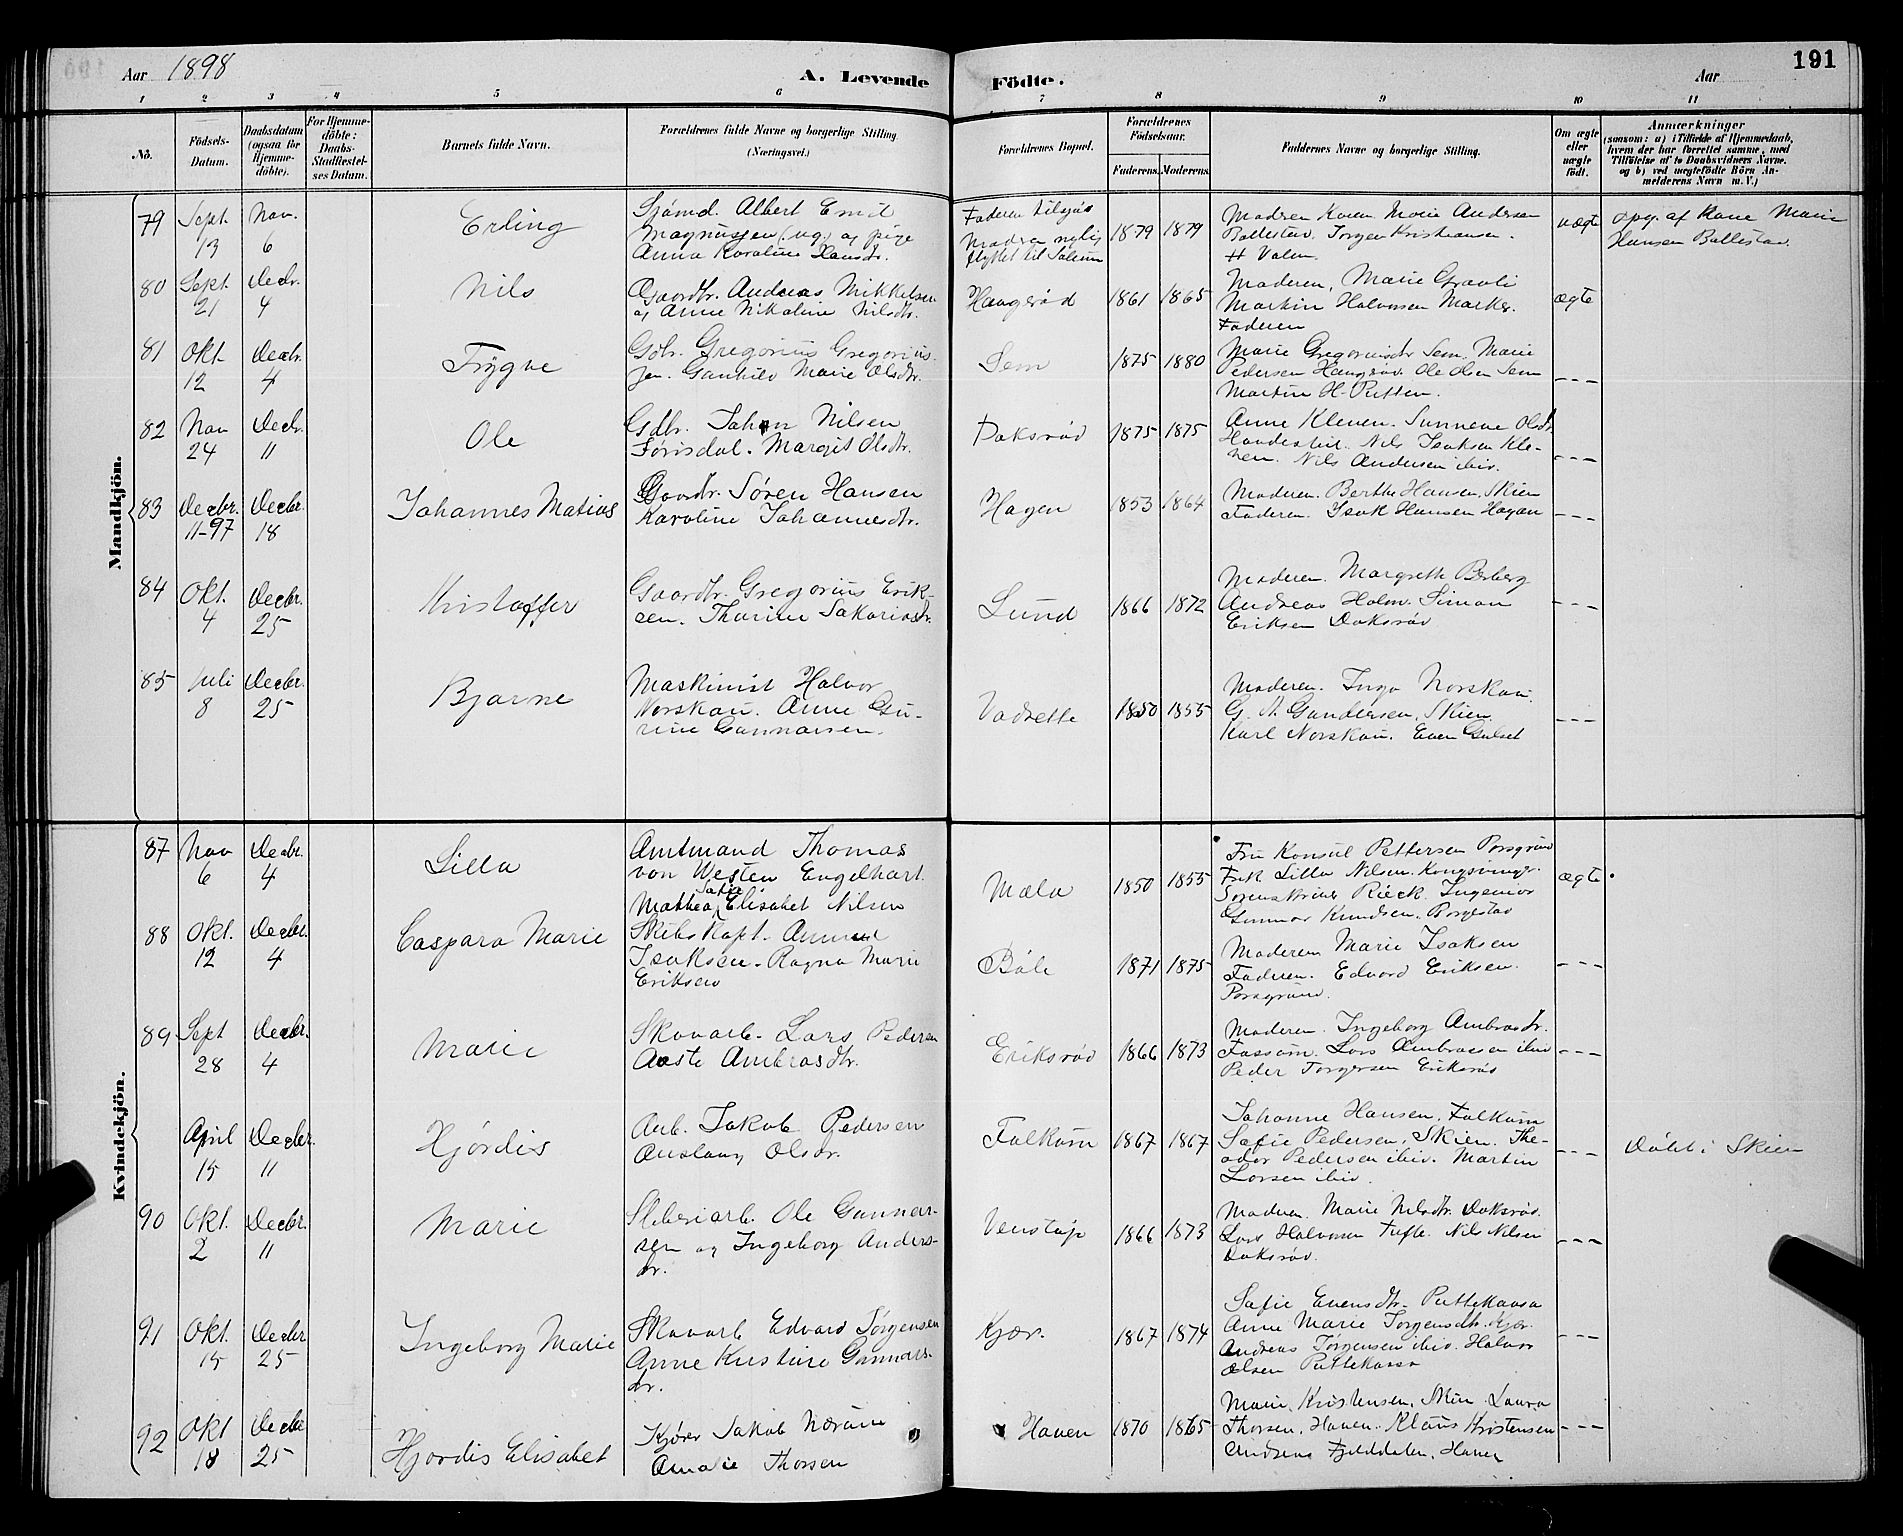 Aar 1898
A. Levende
Födte.
Aar
191
1 2 3 4 5 6 7 8 9 10 11
No.
Födsels-
Datum.
Daabsdatum
(ogsaa for
Hjemme-
döbte).
For Hjemme-
döbte:
Daabs-
Stadfæstel-
ses Datum.
Barnets fulde Navn.
Forældrenes fulde Navne og borgerlige Stilling.
(Næringsvei.)
Forældrenes Bopæl.
Forældrenes
Födselsaar.
Faderens. Moderens.
Faddernes Navne og borgerlige Stilling.
Om ægte
eller
uægte
födt.
Anmærkninger
(saasom: a) i Tilfælde af Hjemmedaab,
hvem der har forrettet samme, med
Tilföielse af to Daabsvidners Navne,
og b) ved uægtefödte Börn An-
melderens Navn m. V.)
Mandkjön.
79 Sept. 13 Nov. 6 Erling
Sjömd. Albert Emil
Magnussen (ug) og pige
Anna Karoline Hansdtr.
Faderen
Moderen nylig
flyttet til
1879 1879
Moderen Karen Marie Andersen
Ballestad. Jörgen Kristiansen.
H Valen
uægte
opg. af Kone Marie
Hansen Ballestad.
80 Sept. 21 Decbr. 4 Nils
Gaardbr. Andreas Mikkelsen
og Anne Nikoline Nilsdtr.
Haugerød 1861 1865
Moderen, Marie Graoli
Martin Halvorsen
Faderen
ægte
81 Okt. 12 Decbr. 4 Trygve
Gdbr. Gregorius Gregorius-
sen. Gunhild Marie Olsdtr.
Sem 1875 1880
Marie Gregoriusdtr Sem. Marie
Pedersen Haugrød. Ole Olsen Sem
Martin H.
---
82 Nov 24 Decbr. 11 Ole
Gdbr. Johan Nilsen
Førisdal. Margit Olsdtr.
Doksrød 1875 1875
Anne Kleven. Sunneve Olsdtr
Nils Isaksen Kle-
ven. Nils Andersen ibid.
---
83 Decbr. 11-97 Decbr. 18 Johannes Matias
Gaardbr. Søren Hansen
Karoline Johannesdtr.
Hagen 1853 1864
Moderen. Berthe Hansen, Skien
Faderen. Isak Hansen Hagen
---
84 Okt. 4 Decbr. 25 Kristoffer
Gaardbr. Gregorius Erik-
sen. Thorine Sakariasdtr.
Lund 1866 1872
Moderen. Margrethe Berberg
Andreas Holm. Simon
Eriksen Doksrød
---
85 Juli 8 Decbr. 25 Bjarne
Maskinist Halvor
Norskau. Anne Gu-
rine Gunnarsen.
Vadrette 1850 1855
Moderen. Inga Norskau.
G. A. Gundersen, Skien.
Karl Norskau. Even Gulset
---
Kvindekjön.
87 Nov 6 Decbr. 4 Lilla
Amtmand Thomas
von Westen Engelhart.
Mathea Sofie Elisabet Nilsen
Mæla 1850 1855
Fru Konsul Pettersen Porsgrund
Frk Lilla Nilsen. Kongsvinger.
Sorenskriver Rieck. Ingeniør
Gunnar Knudsen. Borgestad
ægte
88 Okt. 12 Decbr. 4 Caspara Marie
Skibskapt. Amund
Isaksen. Ragna Marie
Eriksen
Bøle 1871 1875
Moderen Marie Isaksen
Faderen. Edvard Eriksen.
Porsgrund.
---
89 Sept 28 Decbr. 4 Marie
Skovarb. Lars Pedersen
Aaste Ambrosdtr.
Eriksrød 1866 1873
Moderen. Ingeborg Ambrosdtr.
Fossum. Lars Ambrossen ibid
Peder Torgersen Eriksrød
---
April 15 Decbr. 11 Hjørdis
Arb. Jakob Pedersen
Aaslaug Olsdtr.
Falkum 1867 1867
Johanne Hansen, Falkum
Sofie Pedersen, Skien. The-
odor Pedersen ibid. Martin
Larsen ibid.
---
Døbt i Skien
90 Okt. 2 Decbr. 11 Marie
Sliberiarb. Ole Gunnar-
sen og Ingeborg Anders-
dtr.
Venstøp 1866 1873
Moderen. Marie Nilsdtr. Doksrød.
Lars Halvorsen Tufte. Nils Nilsen
Doksrød.
---
91 Okt. 15 Decbr 25 Ingeborg Marie
Skovarb Edvard Jørgensen
Anne Kristine Gunnars-
dtr.
Kjær. 1867 1874
Sofie Evensdtr. Puttekaasa
Anne Marie Jørgensdtr. Kjær.
Andreas Jørgensen ibid. Halvor
Olsen Puttekaasa
---
92 Okt 18 Decbr 25 Hjørdis Elisabet
Jakob
Amalie Thorsen
Haven 1870 1865
Marie Kristensen, Skien. Laura
Thorsen, Haven. Klaus Kristensen
Andreas Fjelddalen, Haven
---